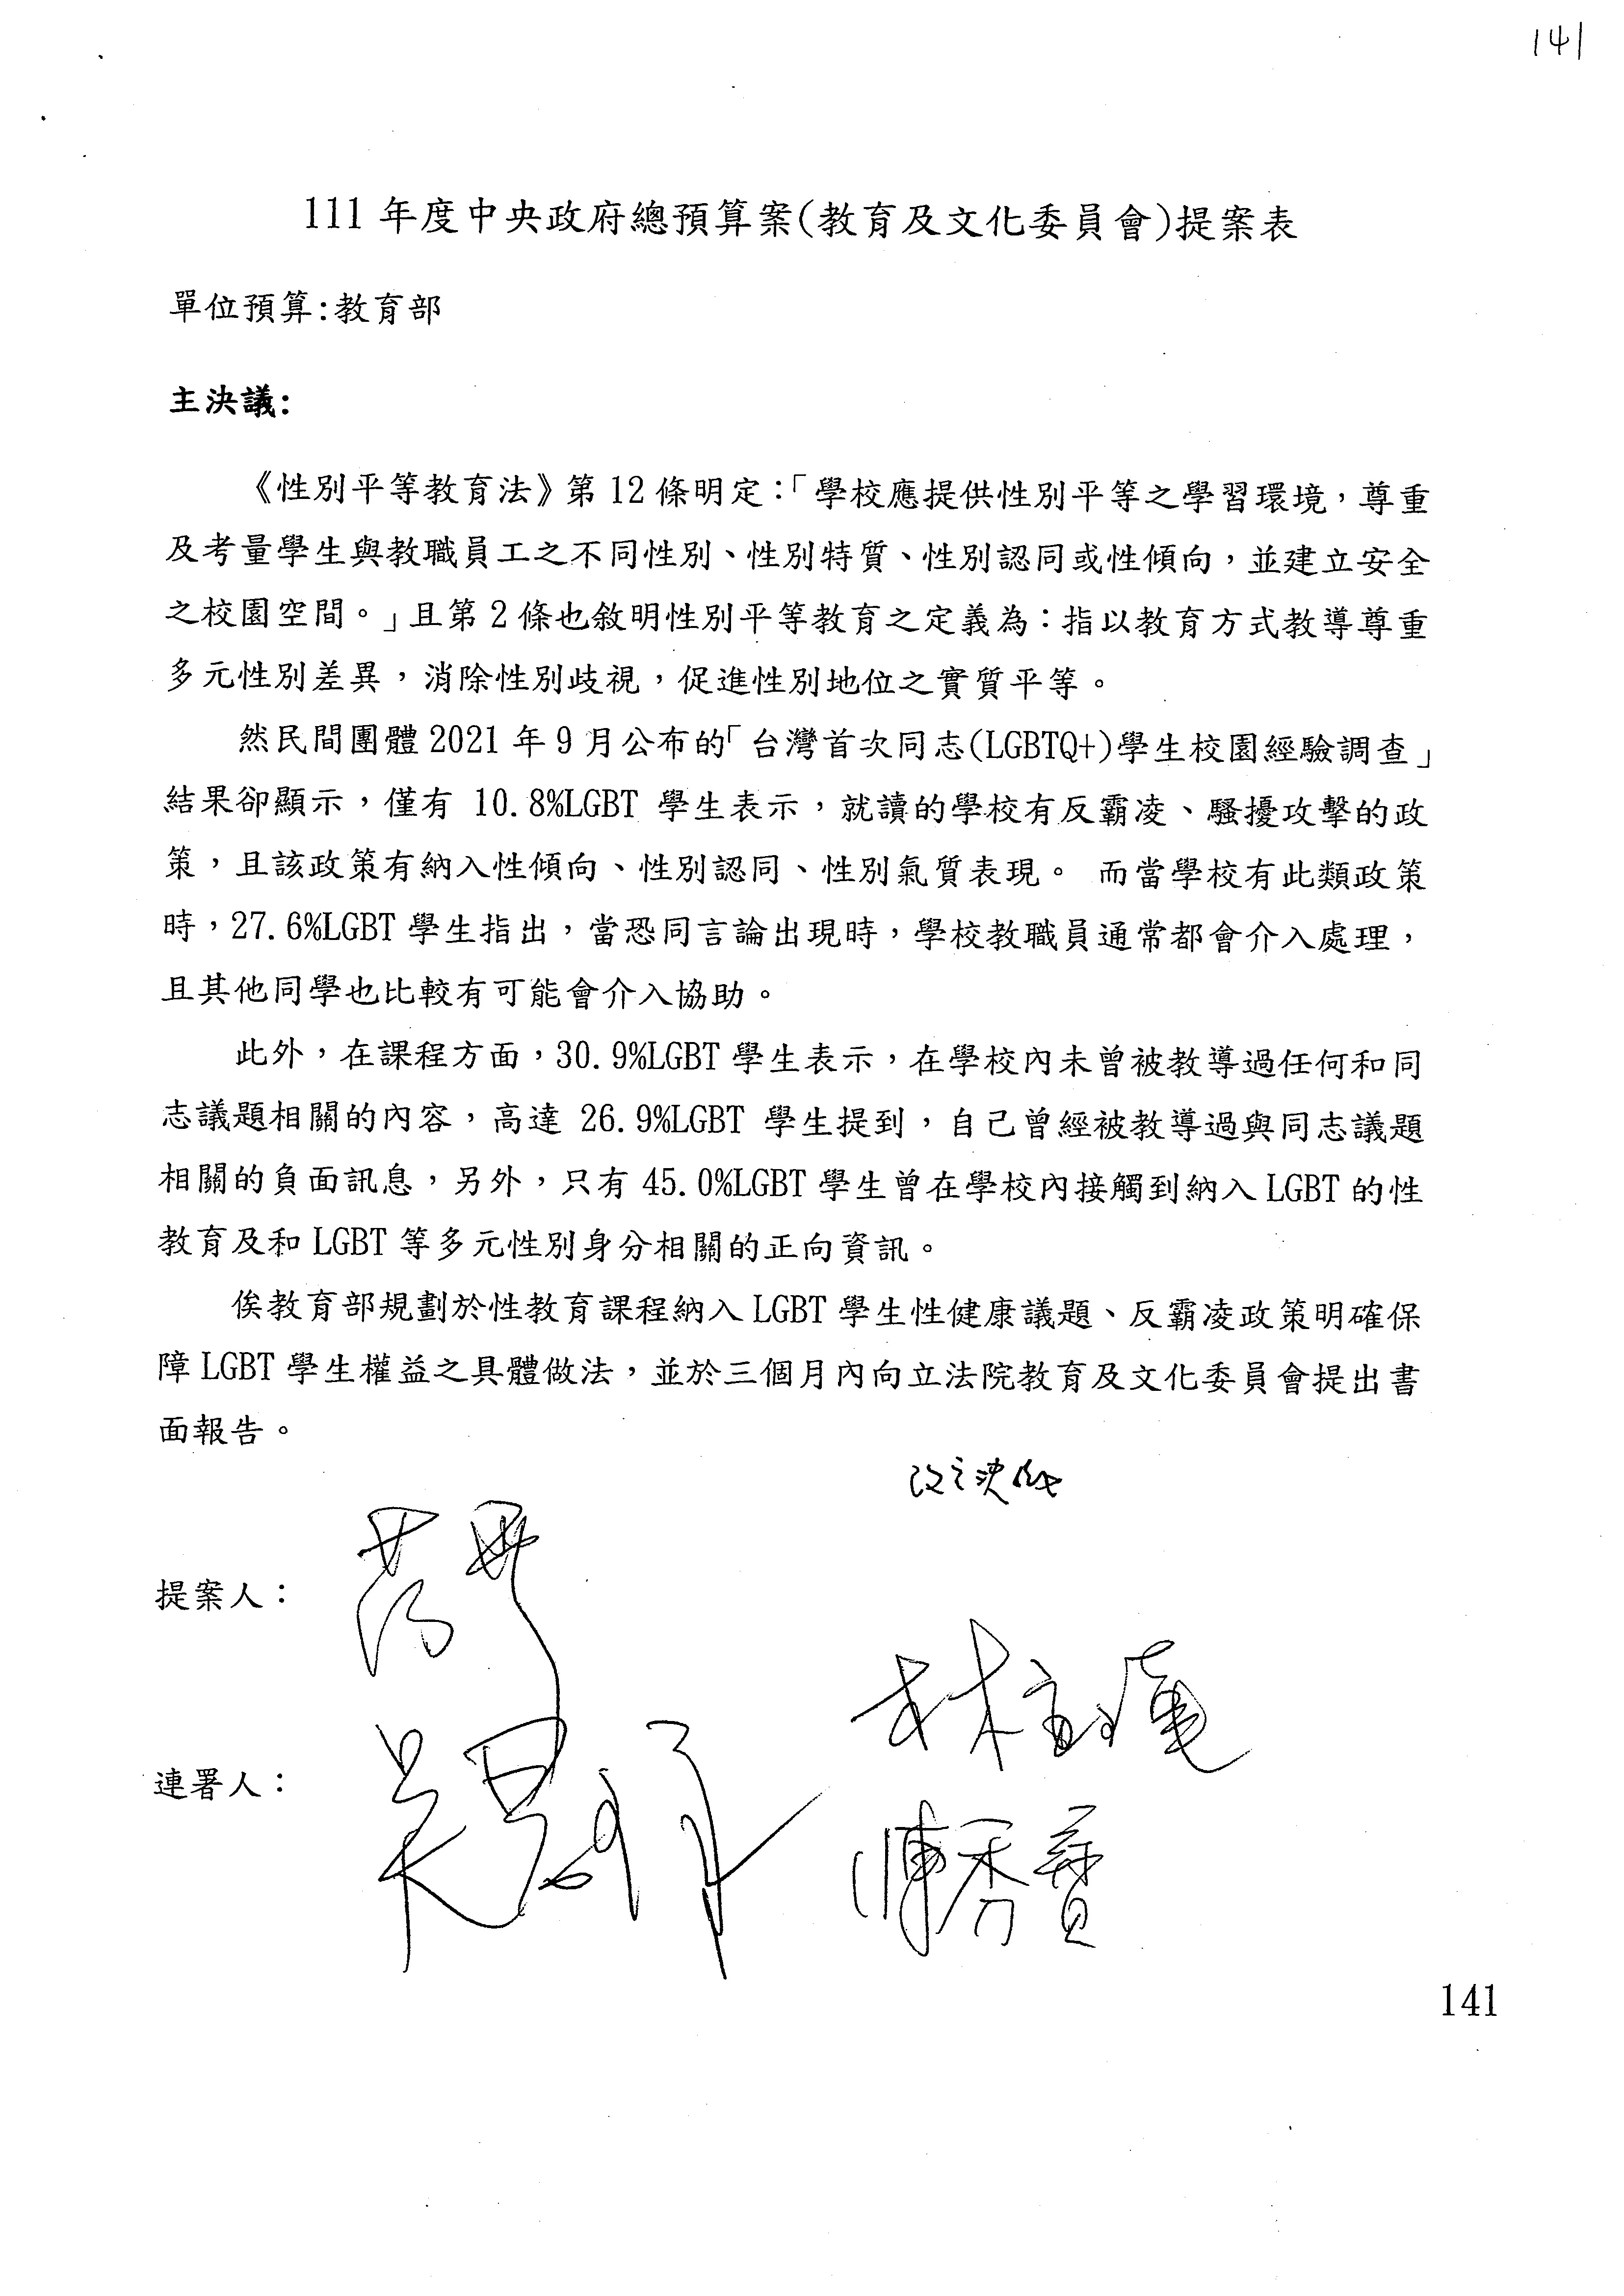 141
111 年度中央政府總預算案(教育及文化委員會)提案表
單位預算:教育部
主決議:
《性別平等教育法》第 12 條明定:「學校應提供性別平等之學習環境,尊重
及考量學生與教職員工之不同性別、性別特質、性別認同或性傾向,並建立安全
之校園空間。」且第 2 條也敘明性別平等教育之定義為:指以教育方式教導尊重
多元性別差異,消除性別歧視,促進性別地位之實質平等。
然民間團體 2021 年 9 月公布的「台灣首次同志(LGBTQ+)學生校園經驗調查」
結果卻顯示,僅有 10.8%LGBT 學生表示,就讀的學校有反霸凌、騷擾攻擊的政
策,且該政策有納入性傾向、性別認同、性別氣質表現。 而當學校有此類政策
時,27.6%LGBT 學生指出,當恐同言論出現時,學校教職員通常都會介入處理,
且其他同學也比較有可能會介入協助。
此外,在課程方面,30.9%LGBT 學生表示,在學校內未曾被教導過任何和同
志議題相關的內容,高達 26.9%LGBT 學生提到,自己曾經被教導過與同志議題
相關的負面訊息,另外,只有 45.0%LGBT 學生曾在學校內接觸到納入 LGBT 的性
教育及和 LGBT 等多元性別身分相關的正向資訊。
俟教育部規劃於性教育課程納入 LGBT 學生性健康議題、反霸凌政策明確保
障 LGBT 學生權益之具體做法,並於三個月內向立法院教育及文化委員會提出書
面報告。
提案人:
連署人:
陳秀寶
141